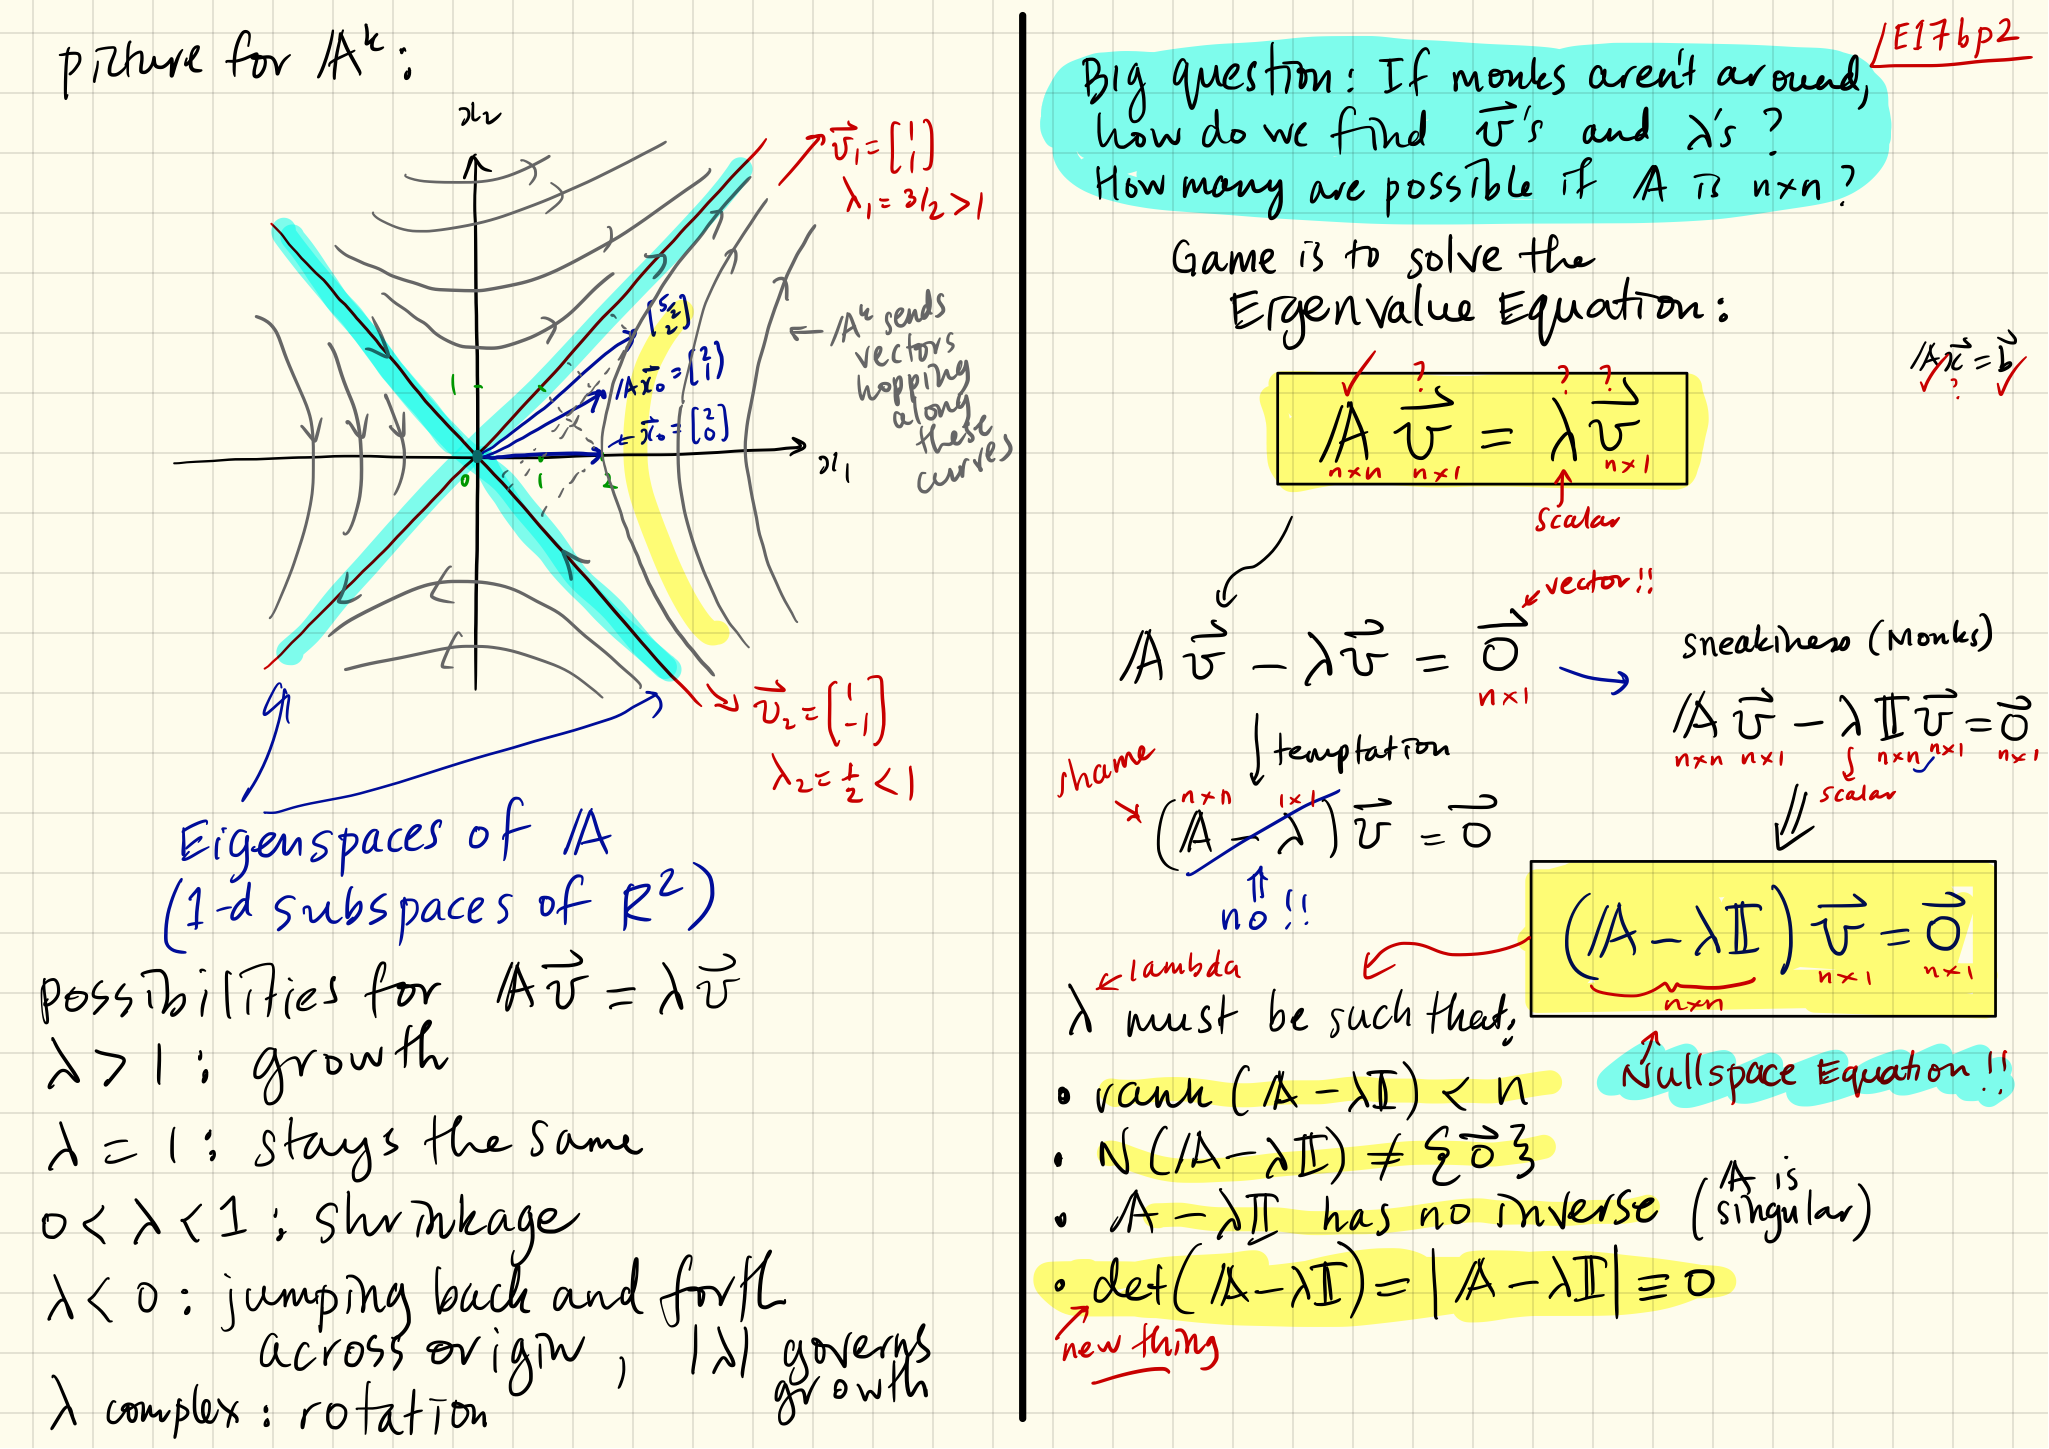 picture for 𝔸ᵏ:
x₂
v⃗₁ = [1 1]
λ₁ = 3/2 > 1
[5/2 2]
𝔸x⃗₀ = [2 1]
← x⃗₀ = [2 0]
1
0 1 2
x₁
← 𝔸ᵏ sends
vectors
hopping
along
these
curves
v⃗₂ = [1 -1]
λ₂ = 1/2 < 1
Eigenspaces of 𝔸
(1-d subspaces of R²)
possibilities for 𝔸v⃗ = λv⃗
λ > 1 : growth
λ = 1 : stays the same
0 < λ < 1 : shrinkage
λ < 0 : jumping back and forth
across origin, |λ| governs
growth
λ complex : rotation
E17bp2
Big question: If monks aren't around,
how do we find v⃗'s and λ's?
How many are possible if 𝔸 is n×n?
Game is to solve the
Eigenvalue Equation:
𝔸x⃗ = b⃗
✓ ? ✓
✓ ? ? ?
𝔸 v⃗ = λ v⃗
n×n n×1 n×1
scalar
vector!!
𝔸v⃗ − λv⃗ = 0⃗
n×1
sneakiness (Monks)
𝔸v⃗ − λ𝕀v⃗ = 0⃗
n×n n×1 n×n n×1 n×1
scalar
temptation
shame
n×n 1×1
(𝔸 − λ) v⃗ = 0⃗
no!!
(𝔸 − λ𝕀) v⃗ = 0⃗
n×n n×1 n×1
Nullspace Equation!!
← lambda
λ must be such that:
• rank(𝔸 − λ𝕀) < n
• N(𝔸 − λ𝕀) ≠ {0⃗}
• 𝔸 − λ𝕀 has no inverse (𝔸 is
singular)
• det(𝔸 − λ𝕀) = |𝔸 − λ𝕀| ≡ 0
new thing